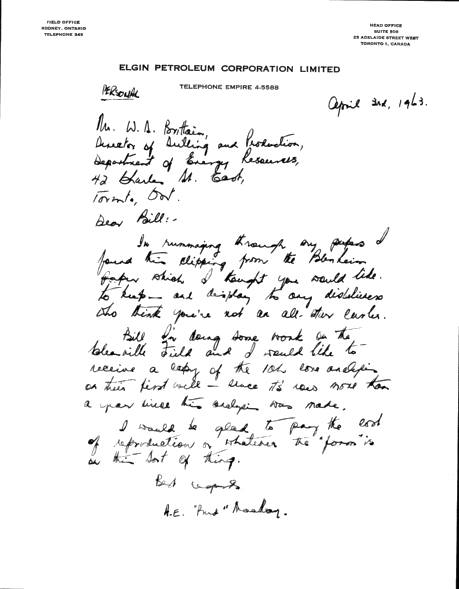 FIELD OFFICE
RODNEY, ONTARIO
TELEPHONE 245
HEAD OFFICE
SUITE 509
25 ADELAIDE STREET WEST
TORONTO 1, CANADA
ELGIN PETROLEUM CORPORATION LIMITED
TELEPHONE EMPIRE 4-5588
PERSONAL
April 3rd, 1963.
Mr. W. D. Brittain,
Director of Drilling and Production,
Department of Energy Resources,
42 Charles St. East,
Toronto, Ont.
Dear Bill:-
In rummaging through my papers I
found this clipping from the Blenheim
paper which I thought you would like
to keep - and display to any disbelievers
who think you're not an all-star curler.
Bill I'm doing some work on the
Field and I would like to
receive a copy of the core analysis
on their first well - since it's now more than
a year since this analysis was made.
I would be glad to pay the cost
of reproduction or whatever the "form" is
on this sort of thing.
Best regards
A.E. "Bud" MacKay.